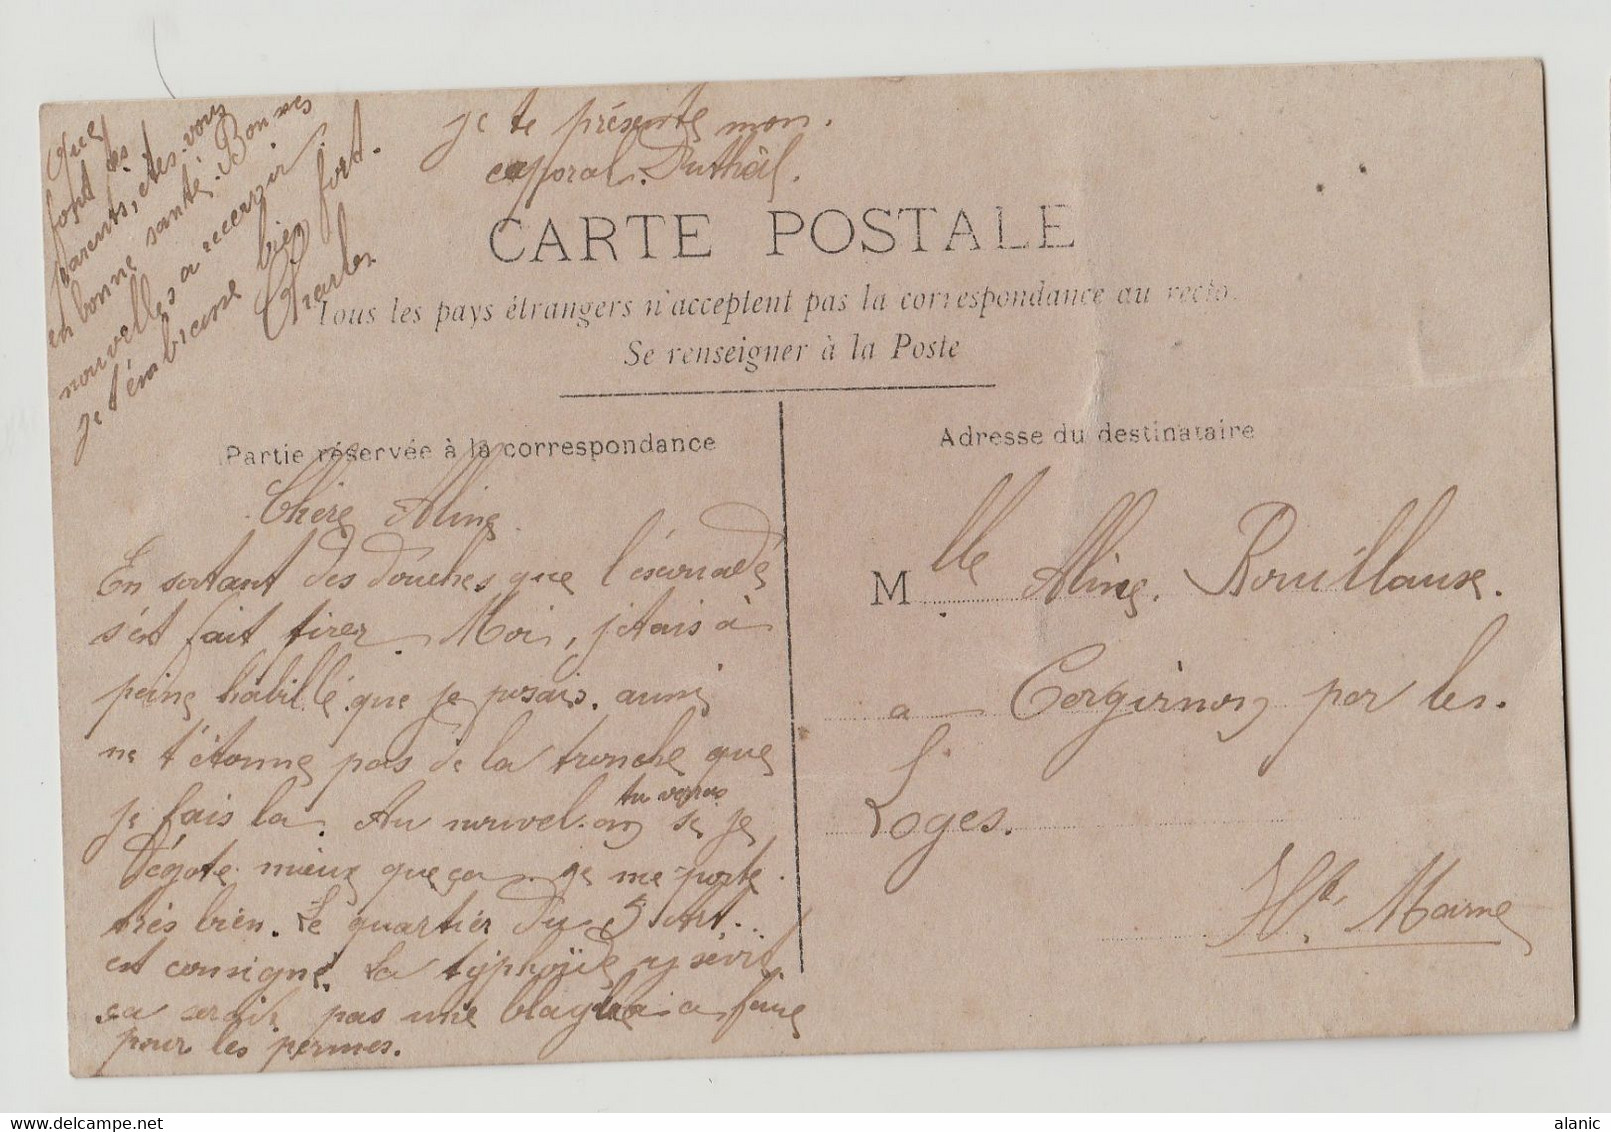 je te présente mon.
caporal. Dutheil.
CARTE POSTALE
Tous les pays étrangers n'acceptent pas la correspondance au recto.
Se renseigner à la Poste
Partie réservée à la correspondance
Chère Aline.
En sortant des douches que l'escouade
s'est fait tirer. Moi, j'étais à
peine habillé que je posais. aussi
ne t'étonne pas de la tronche que
je fais la. Au nouvel. an tu verras si je
dégote mieux que ça. je me porte.
très bien. Le quartier du 5 Art...
est consigné. La typhoïde y sévit.
ça serait pas une blague a faire
pour les permes.
Que
font tes
parents, êtes-vous
en bonne santé. Bonnes
nouvelles a recevoir.
je t'embrasse bien fort.
Charles
Adresse du destinataire
Mlle Aline. Rouillaux.
a Corgirnon par les.
Loges.
Hte Marne
delcampe.net
alanic